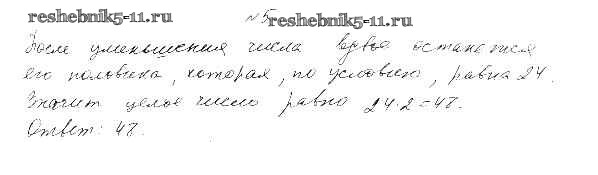 reshebnik5-11.ru
№5 reshebnik5-11.ru
После уменьшения числа вдвое останется
его половина, которая, по условию, равна 24.
Значит целое число равно 24·2=48.
Ответ: 48.